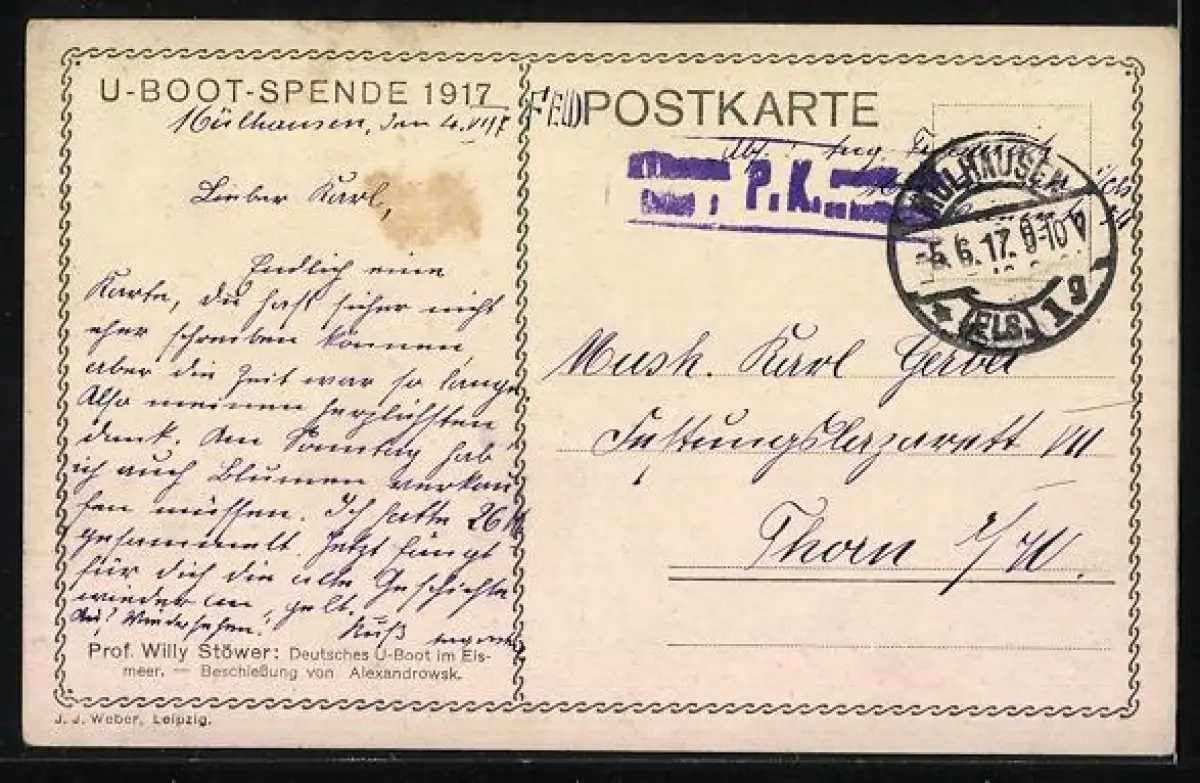 U-BOOT-SPENDE 1917
Mülhausen, den 4. VI 17
Lieber Karl,
Endlich eine
Karte, du hast sicher nicht
eher schreiben können,
aber die Zeit war so lange
Also meinen herzlichsten
dank. Am Sonntag hab
ich auch Blumen verkau
fen müssen. Ich hatte 26 M
gesammelt. Jetzt fängt
für dich die alte Geschichte
wieder an, gelt.
Auf Wiedersehen! Kuß
Prof. Willy Stöwer: Deutsches U-Boot im Eis-
meer. — Beschießung von Alexandrowsk.
J. J. Weber, Leipzig.
Feld POSTKARTE
Abs.:
P. K.
MÜLHAUSEN
5.6.17. 9-10 V
* (ELS.) 1 g
Musk. Karl Gerber
Festungslazarett VII
Thorn i/W.